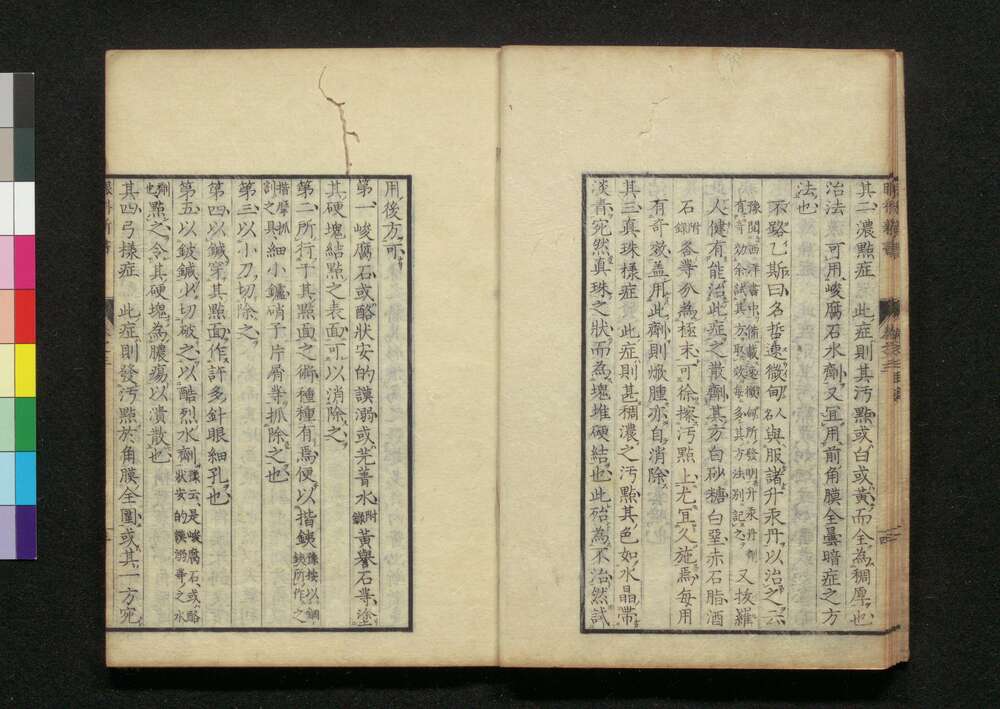 其二濃點症 此症則其汚點或白或黃而全為稠厚也
治法 可用峻腐石水劑又宜用前角膜全曇暗症之方
法也
不路乙斯曰名哲速微甸人名與服諸升汞丹以治之云
豫閱西洋書中備載速微甸所發明升汞丹劑
有奇効余試其方取效每多其方法列記之 又抜羅
人健有能治此症之散劑其方白砂糖白堊赤石脂酒
石附錄各等分為極末可徐擦汚點上尤宜久施焉每用
有奇效蓋用此劑則焮腫亦自消除
其三真珠樣症 此症則甚稠濃之汚點其色如水晶帶
淡青宛然真珠之狀而為塊堆硬結也此殆為不治然試
用後方可
第一峻腐石或酪狀安的謨溺或芫菁水附錄黃礬石等塗
其硬塊結點之表面可以消除之
第二所行于其點面之術種種有焉便以揩銕豫按以鋼銕所作之
揩摩抓刮之具細小鑢硝子片屑等抓除之也
第三以小刀切除之
第四以鍼穿其點面作許多針眼細孔也
第五以鈹鍼少切破之以酷烈水劑豫云是峻腐石或酪狀安的謨溺等之水
劑也點之令其硬塊為膿瘍以潰散也
其四弓樣症 此症則發汚點於角膜全圍或其一方宛